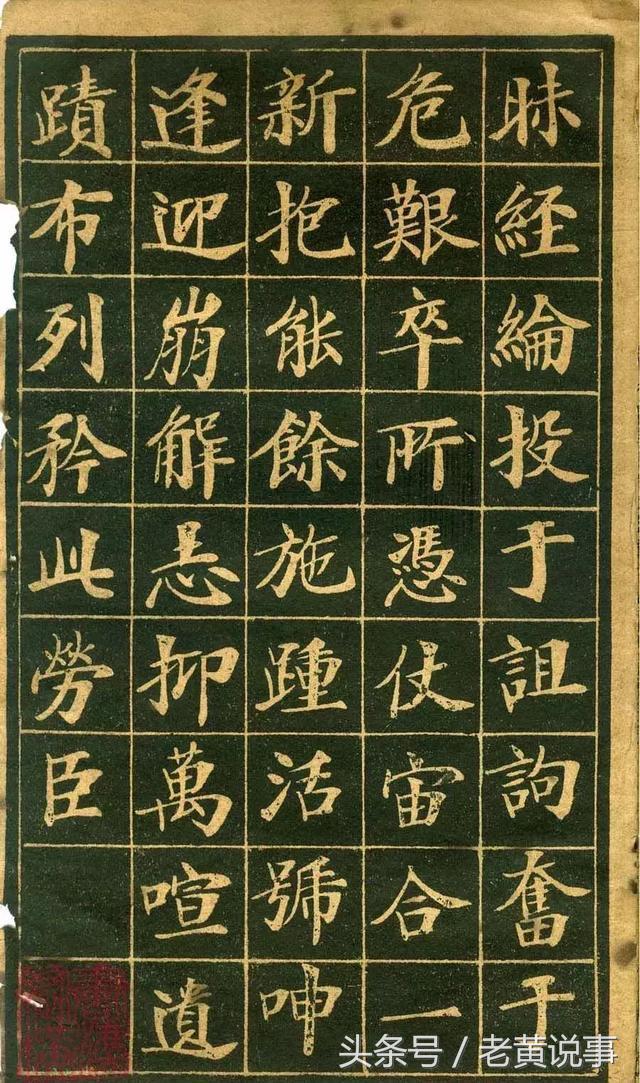 昧經綸投于詛訽奮于
危艱卒所憑仗宙合一
新抱能餘施踵活號呻
逢迎崩解抑萬喧遺
蹟布列矜此勞臣
头条号 / 老黄说事